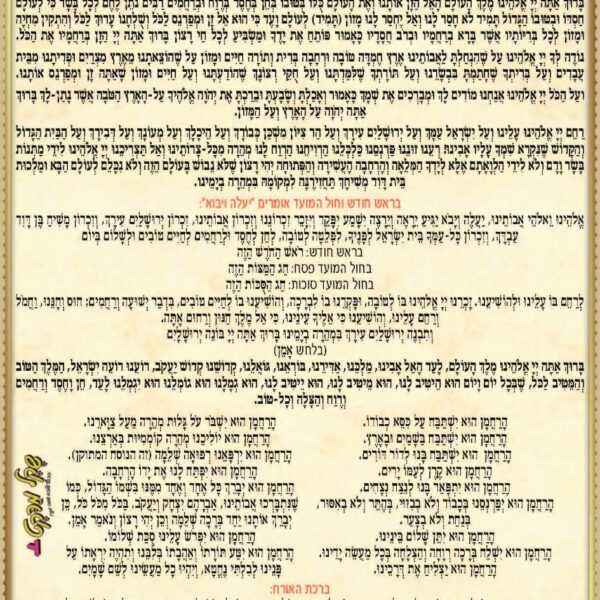 בָּרוּךְ אַתָּה יְיָ אֱלֹהֵינוּ מֶלֶךְ הָעוֹלָם הָאֵל הַזָּן אוֹתָנוּ וְאֶת הָעוֹלָם כֻּלּוֹ בְּטוּבוֹ בְּחֵן בְּחֶסֶד
חַסְדּוֹ וּבְטוּבוֹ הַגָּדוֹל תָּמִיד לֹא חָסַר לָנוּ וְאַל יֶחְסַר לָנוּ מָזוֹן (תָּמִיד) לְעוֹלָם וָעֶד
וּמָזוֹן לְכָל בְּרִיּוֹתָיו אֲשֶׁר בָּרָא
נוֹדֶה לְךָ יְיָ אֱלֹהֵינוּ עַל שֶׁהִנְחַלְתָּ לַאֲבוֹתֵינוּ אֶרֶץ חֶמְדָּה טוֹבָה וּרְחָבָה בְּרִית וְתוֹרָה חַיִּים וּמָזוֹן עַל שֶׁהוֹצֵאתָנוּ מֵאֶרֶץ מִצְרַיִם וּפְדִיתָנוּ מִבֵּית
עֲבָדִים וְעַל בְּרִיתְךָ שֶׁחָתַמְתָּ בִּבְשָׂרֵנוּ וְעַל תּוֹרָתְךָ שֶׁלִּמַּדְתָּנוּ וְעַל חֻקֵּי רְצוֹנָךְ שֶׁהוֹדַעְתָּנוּ וְעַל חַיִּים וּמָזוֹן שֶׁאַתָּה זָן וּמְפַרְנֵס אוֹתָנוּ.
וְעַל הַכֹּל יְיָ אֱלֹהֵינוּ אֲנַחְנוּ מוֹדִים לָךְ וּמְבָרְכִים אֶת שְׁמָךְ כָּאָמוּר וְאָכַלְתָּ וְשָׂבָעְתָּ וּבֵרַכְתָּ אֶת יְהֹוָה אֱלֹהֶיךָ עַל-הָאָרֶץ הַטֹּבָה אֲשֶׁר נָתַן-לָךְ בָּרוּךְ
אַתָּה יְהֹוָה עַל הָאָרֶץ וְעַל הַמָּזוֹן.
רַחֵם יְיָ אֱלֹהֵינוּ עָלֵינוּ וְעַל יִשְׂרָאֵל עַמָּךְ וְעַל יְרוּשָׁלַיִם עִירָךְ וְעַל הַר צִיּוֹן מִשְׁכַּן כְּבוֹדָךְ וְעַל הֵיכָלָךְ וְעַל מְעוֹנָךְ וְעַל דְּבִירָךְ וְעַל הַבַּיִת הַגָּדוֹל
וְהַקָּדוֹשׁ שֶׁנִּקְרָא שִׁמְךָ עָלָיו אָבִינוּ רְעֵנוּ זוּנֵנוּ פַּרְנְסֵנוּ כַּלְכְּלֵנוּ הַרְוִיחֵנוּ הַרְוַח לָנוּ מְהֵרָה מִכָּל-צָרוֹתֵינוּ וְאַל תַּצְרִיכֵנוּ יְיָ אֱלֹהֵינוּ לִידֵי מַתְּנוֹת
בָּשָׂר וָדָם וְלֹא לִידֵי הַלְוָאָתָם אֶלָּא לְיָדְךָ הַמְּלֵאָה וְהָרְחָבָה הָעֲשִׁירָה וְהַפְּתוּחָה יְהִי רָצוֹן שֶׁלֹּא נֵבוֹשׁ בָּעוֹלָם הַזֶּה וְלֹא נִכָּלֵם לָעוֹלָם הַבָּא וּמַלְכוּת
בֵּית דָּוִד מְשִׁיחָךְ תַּחֲזִירֶנָּה לִמְקוֹמָהּ בִּמְהֵרָה בְיָמֵינוּ.
בראש חודש וחול המועד אומרים "יעלה ויבוא":
אֱלֹהֵינוּ, וֵאלֹהֵי אֲבוֹתֵינוּ, יַעֲלֶה וְיָבֹא יַגִּיעַ יֵרָאֶה וְיֵרָצֶה יִשָּׁמַע יִפָּקֵד וְיִזָּכֵר זִכְרוֹנֵנוּ וְזִכְרוֹן אֲבוֹתֵינוּ, זִכְרוֹן יְרוּשָׁלַיִם עִירָךְ, וְזִכְרוֹן מָשִׁיחַ בֶּן דָּוִד
עַבְדָּךְ, וְזִכְרוֹן כָּל-עַמְּךָ בֵּית יִשְׂרָאֵל לְפָנֶיךָ, לִפְלֵיטָה לְטוֹבָה, לְחֵן לְחֶסֶד וּלְרַחֲמִים לְחַיִּים טוֹבִים וּלְשָׁלוֹם בְּיוֹם
בראש חודש: רֹאשׁ הַחֹדֶשׁ הַזֶּה
בחול המועד פסח: חַג הַמַּצּוֹת הַזֶּה
בחול המועד סוכות: חַג הַסֻּכּוֹת הַזֶּה
לְרַחֵם בּוֹ עָלֵינוּ וּלְהוֹשִׁיעֵנוּ, זָכְרֵנוּ יְיָ אֱלֹהֵינוּ בּוֹ לְטוֹבָה, וּפָקְדֵנוּ בוֹ לִבְרָכָה, וְהוֹשִׁיעֵנוּ בוֹ לְחַיִּים טוֹבִים, בִּדְבַר יְשׁוּעָה וְרַחֲמִים; חוּס וְחָנֵּנוּ, וַחֲמֹל
וְרַחֵם עָלֵינוּ, וְהוֹשִׁיעֵנוּ כִּי אֵלֶיךָ עֵינֵינוּ, כִּי אֵל מֶלֶךְ חַנּוּן וְרַחוּם אָתָּה,
וְתִבְנֶה יְרוּשָׁלַיִם עִירָךְ בִּמְהֵרָה בְיָמֵינוּ בָּרוּךְ אַתָּה יְיָ בּוֹנֵה יְרוּשָׁלַיִם
(בלחש אָמֵן)
בָּרוּךְ אַתָּה יְיָ אֱלֹהֵינוּ מֶלֶךְ הָעוֹלָם, לָעַד הָאֵל אָבִינוּ, מַלְכֵּנוּ, אַדִּירֵנוּ, בּוֹרְאֵנוּ, גּוֹאֲלֵנוּ, קְדוֹשֵׁנוּ קְדוֹשׁ יַעֲקֹב, רוֹעֵנוּ רוֹעֵה יִשְׂרָאֵל, הַמֶּלֶךְ הַטּוֹב
וְהַמֵּטִיב לַכֹּל, שֶׁבְּכָל יוֹם וָיוֹם הוּא הֵיטִיב לָנוּ, הוּא מֵיטִיב לָנוּ, הוּא יֵיטִיב לָנוּ, הוּא גְמָלָנוּ הוּא גוֹמְלֵנוּ הוּא יִגְמְלֵנוּ לָעַד, חֵן וָחֶסֶד וְרַחֲמִים
וְרֶוַח וְהַצָּלָה וְכָל-טוֹב.
הָרַחֲמָן הוּא יִשְׁתַּבַּח עַל כִּסֵּא כְבוֹדוֹ.
הָרַחֲמָן הוּא יִשְׁתַּבַּח בַּשָּׁמַיִם וּבָאָרֶץ.
הָרַחֲמָן הוּא יִשְׁתַּבַּח בָּנוּ לְדוֹר דּוֹרִים.
הָרַחֲמָן הוּא קֶרֶן לְעַמּוֹ יָרִים.
הָרַחֲמָן הוּא יִתְפָּאַר בָּנוּ לְנֵצַח נְצָחִים.
הָרַחֲמָן הוּא יְפַרְנְסֵנוּ בְּכָבוֹד וְלֹא בְבִזּוּי, בְּהֶתֵּר וְלֹא בְאִסּוּר,
בְּנַחַת וְלֹא בְצַעַר.
הָרַחֲמָן הוּא יִתֵּן שָׁלוֹם בֵּינֵינוּ.
הָרַחֲמָן הוּא יִשְׁלַח בְּרָכָה רְוָחָה וְהַצְלָחָה בְּכָל מַעֲשֵׂה יָדֵינוּ.
הָרַחֲמָן הוּא יַצְלִיחַ אֶת דְּרָכֵינוּ.
הָרַחֲמָן הוּא יִשְׁבֹּר עֹל גָּלוּת מְהֵרָה מֵעַל צַוָּארֵנוּ.
הָרַחֲמָן הוּא יוֹלִיכֵנוּ מְהֵרָה קוֹמְמִיּוּת בְּאַרְצֵנוּ.
הָרַחֲמָן הוּא יִרְפָּאֵנוּ רְפוּאָה שְׁלֵמָה (זה הנוסח המתוקן).
הָרַחֲמָן הוּא יִפְתַּח לָנוּ אֶת יָדוֹ הָרְחָבָה.
הָרַחֲמָן הוּא יְבָרֵךְ כָּל אֶחָד וְאֶחָד מִמֶּנּוּ בִּשְׁמוֹ הַגָּדוֹל, כְּמוֹ
שֶׁנִּתְבָּרְכוּ אֲבוֹתֵינוּ, אַבְרָהָם יִצְחָק וְיַעֲקֹב, בַּכֹּל מִכֹּל כֹּל, כֵּן
יְבָרֵךְ אוֹתָנוּ יַחַד בְּרָכָה שְׁלֵמָה וְכֵן יְהִי רָצוֹן וְנֹאמַר אָמֵן.
הָרַחֲמָן הוּא יִפְרֹשׂ עָלֵינוּ סֻכַּת שְׁלוֹמוֹ.
הָרַחֲמָן הוּא יִטַּע תּוֹרָתוֹ וְאַהֲבָתוֹ בְּלִבֵּנוּ וְתִהְיֶה יִרְאָתוֹ עַל
פָּנֵינוּ לְבִלְתִּי נֶחֱטָא, וְיִהְיוּ כָל מַעֲשֵׂינוּ לְשֵׁם שָׁמָיִם.
ברכת האורח: